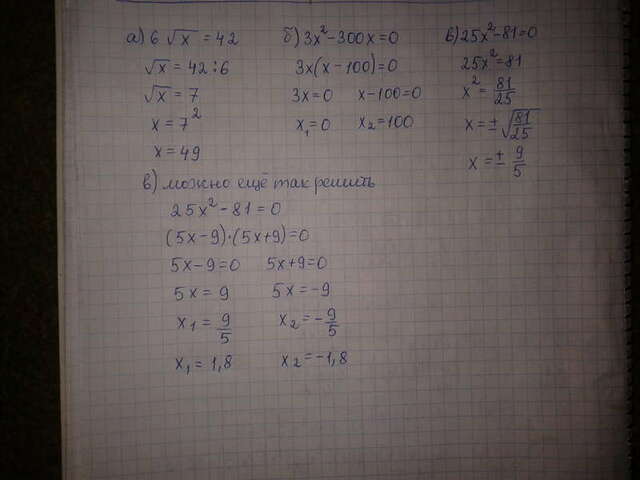 а) 6 √x = 42
√x = 42 : 6
√x = 7
x = 7²
x = 49
б) 3x² - 300x = 0
3x(x - 100) = 0
3x = 0 x - 100 = 0
x₁ = 0 x₂ = 100
в) 25x² - 81 = 0
25x² = 81
x² = 81/25
x = ± √81/25
x = ± 9/5
в) можно ещё так решить
25x² - 81 = 0
(5x - 9)·(5x + 9) = 0
5x - 9 = 0 5x + 9 = 0
5x = 9 5x = -9
x₁ = 9/5 x₂ = - 9/5
x₁ = 1,8 x₂ = -1,8